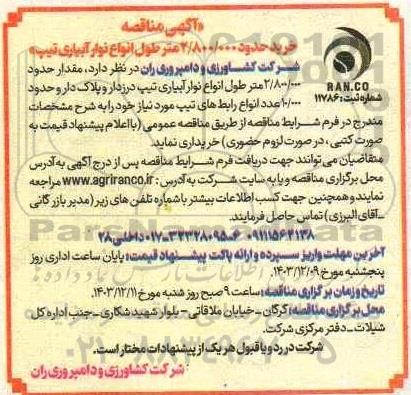 «آگهی مناقصه
خرید حدود ۲/۸۰۰/۰۰۰ متر طول انواع نوار آبیاری تیپ»
RAN.CO
شماره ثبت: ۱۱۷۸۶
شرکت کشاورزی و دامپروری ران در نظر دارد، مقدار حدود
۲/۸۰۰/۰۰۰ متر طول انواع نوار آبیاری تیپ درزدار و پلاک دار و حدود
۱۰/۰۰۰ عدد انواع رابط های تیپ مورد نیاز خود را به شرح مشخصات
مندرج در فرم شرایط مناقصه از طریق مناقصه عمومی (با اعلام پیشنهاد قیمت به
صورت کتبی، در صورت لزوم حضوری) خریداری نماید
متقاضیان می توانند جهت دریافت فرم شرایط مناقصه پس از درج آگهی به آدرس
محل برگزاری مناقصه و یا به سایت شرکت به آدرس: www.agriranco.ir مراجعه
نمایند و همچنین جهت کسب اطلاعات بیشتر با شماره تلفن های زیر (مدیر بازرگانی
_آقای البرزی) تماس حاصل فرمایند.
۰۹۱۱۱۵۶۲۱۳۸ _۶ _۰۱۷-۳۳۳۲۸۰۹۵ داخلی ۲۸
آخرین مهلت واریز سپرده و ارائه پاکت پیشنهاد قیمت: پایان ساعت اداری روز
پنجشنبه مورخ ۱۴۰۳/۱۲/۰۹
تاریخ و زمان برگزاری مناقصه: ساعت ۹ صبح روز شنبه مورخ ۱۴۰۳/۱۲/۱۱
محل برگزاری مناقصه: گرگان_خیابان ملاقاتی_بلوار شهید شکاری_جنب اداره کل
شیلات_دفتر مرکزی شرکت.
شرکت در رد و یا قبول هر یک از پیشنهادات مختار است.
شرکت کشاورزی و دامپروری ران